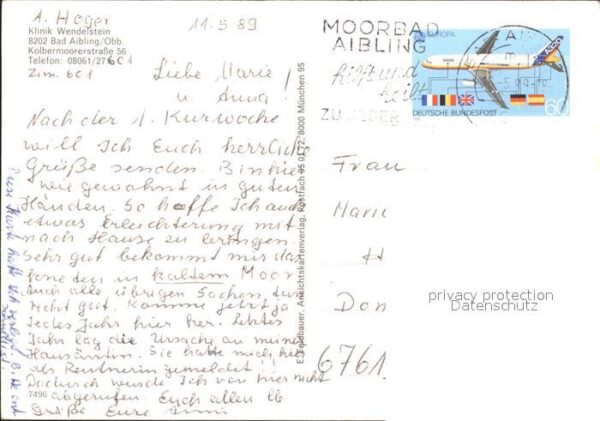 A. Höger
Klinik Wendelstein
8202 Bad Aibling/Obb.
Kolbermoorerstraße 56
Telefon: 08061/27601
Zim. 601
11.5.89
Liebe Marie!
u. Anna!
Nach der 1. Kurwoche
will Ich Euch herrliche
Grüße senden. Bin hier
wie gewohnt in guten
Händen. So hoffe Ich auch
etwas Erleichterung mit
nach Hause zu bringen.
Sehr gut bekommt mir das
kneten in kaltem Moor
auch alle übrigen Sachen, tun
recht gut. Komme jetzt ja
jedes Jahr hier her. Letztes
Jahr lag die Ursache an meiner
Hausärztin. Sie hatte mich hier
als Rentnerin gemeldet!!
Dadurch wurde Ich von hier nicht
abgerufen. Euch allen lb
Grüße Eure
7496
Diese Karte
E. Feldbauer, Ansichtskartenverlag, Postfach 95 01 72, 8000 München 95
MOORBAD
AIBLING
hilft und
heilt
ZU JEDER
EUROPA
60
DEUTSCHE BUNDESPOST
Frau
Marie
H
Don
6761
privacy protection
Datenschutz